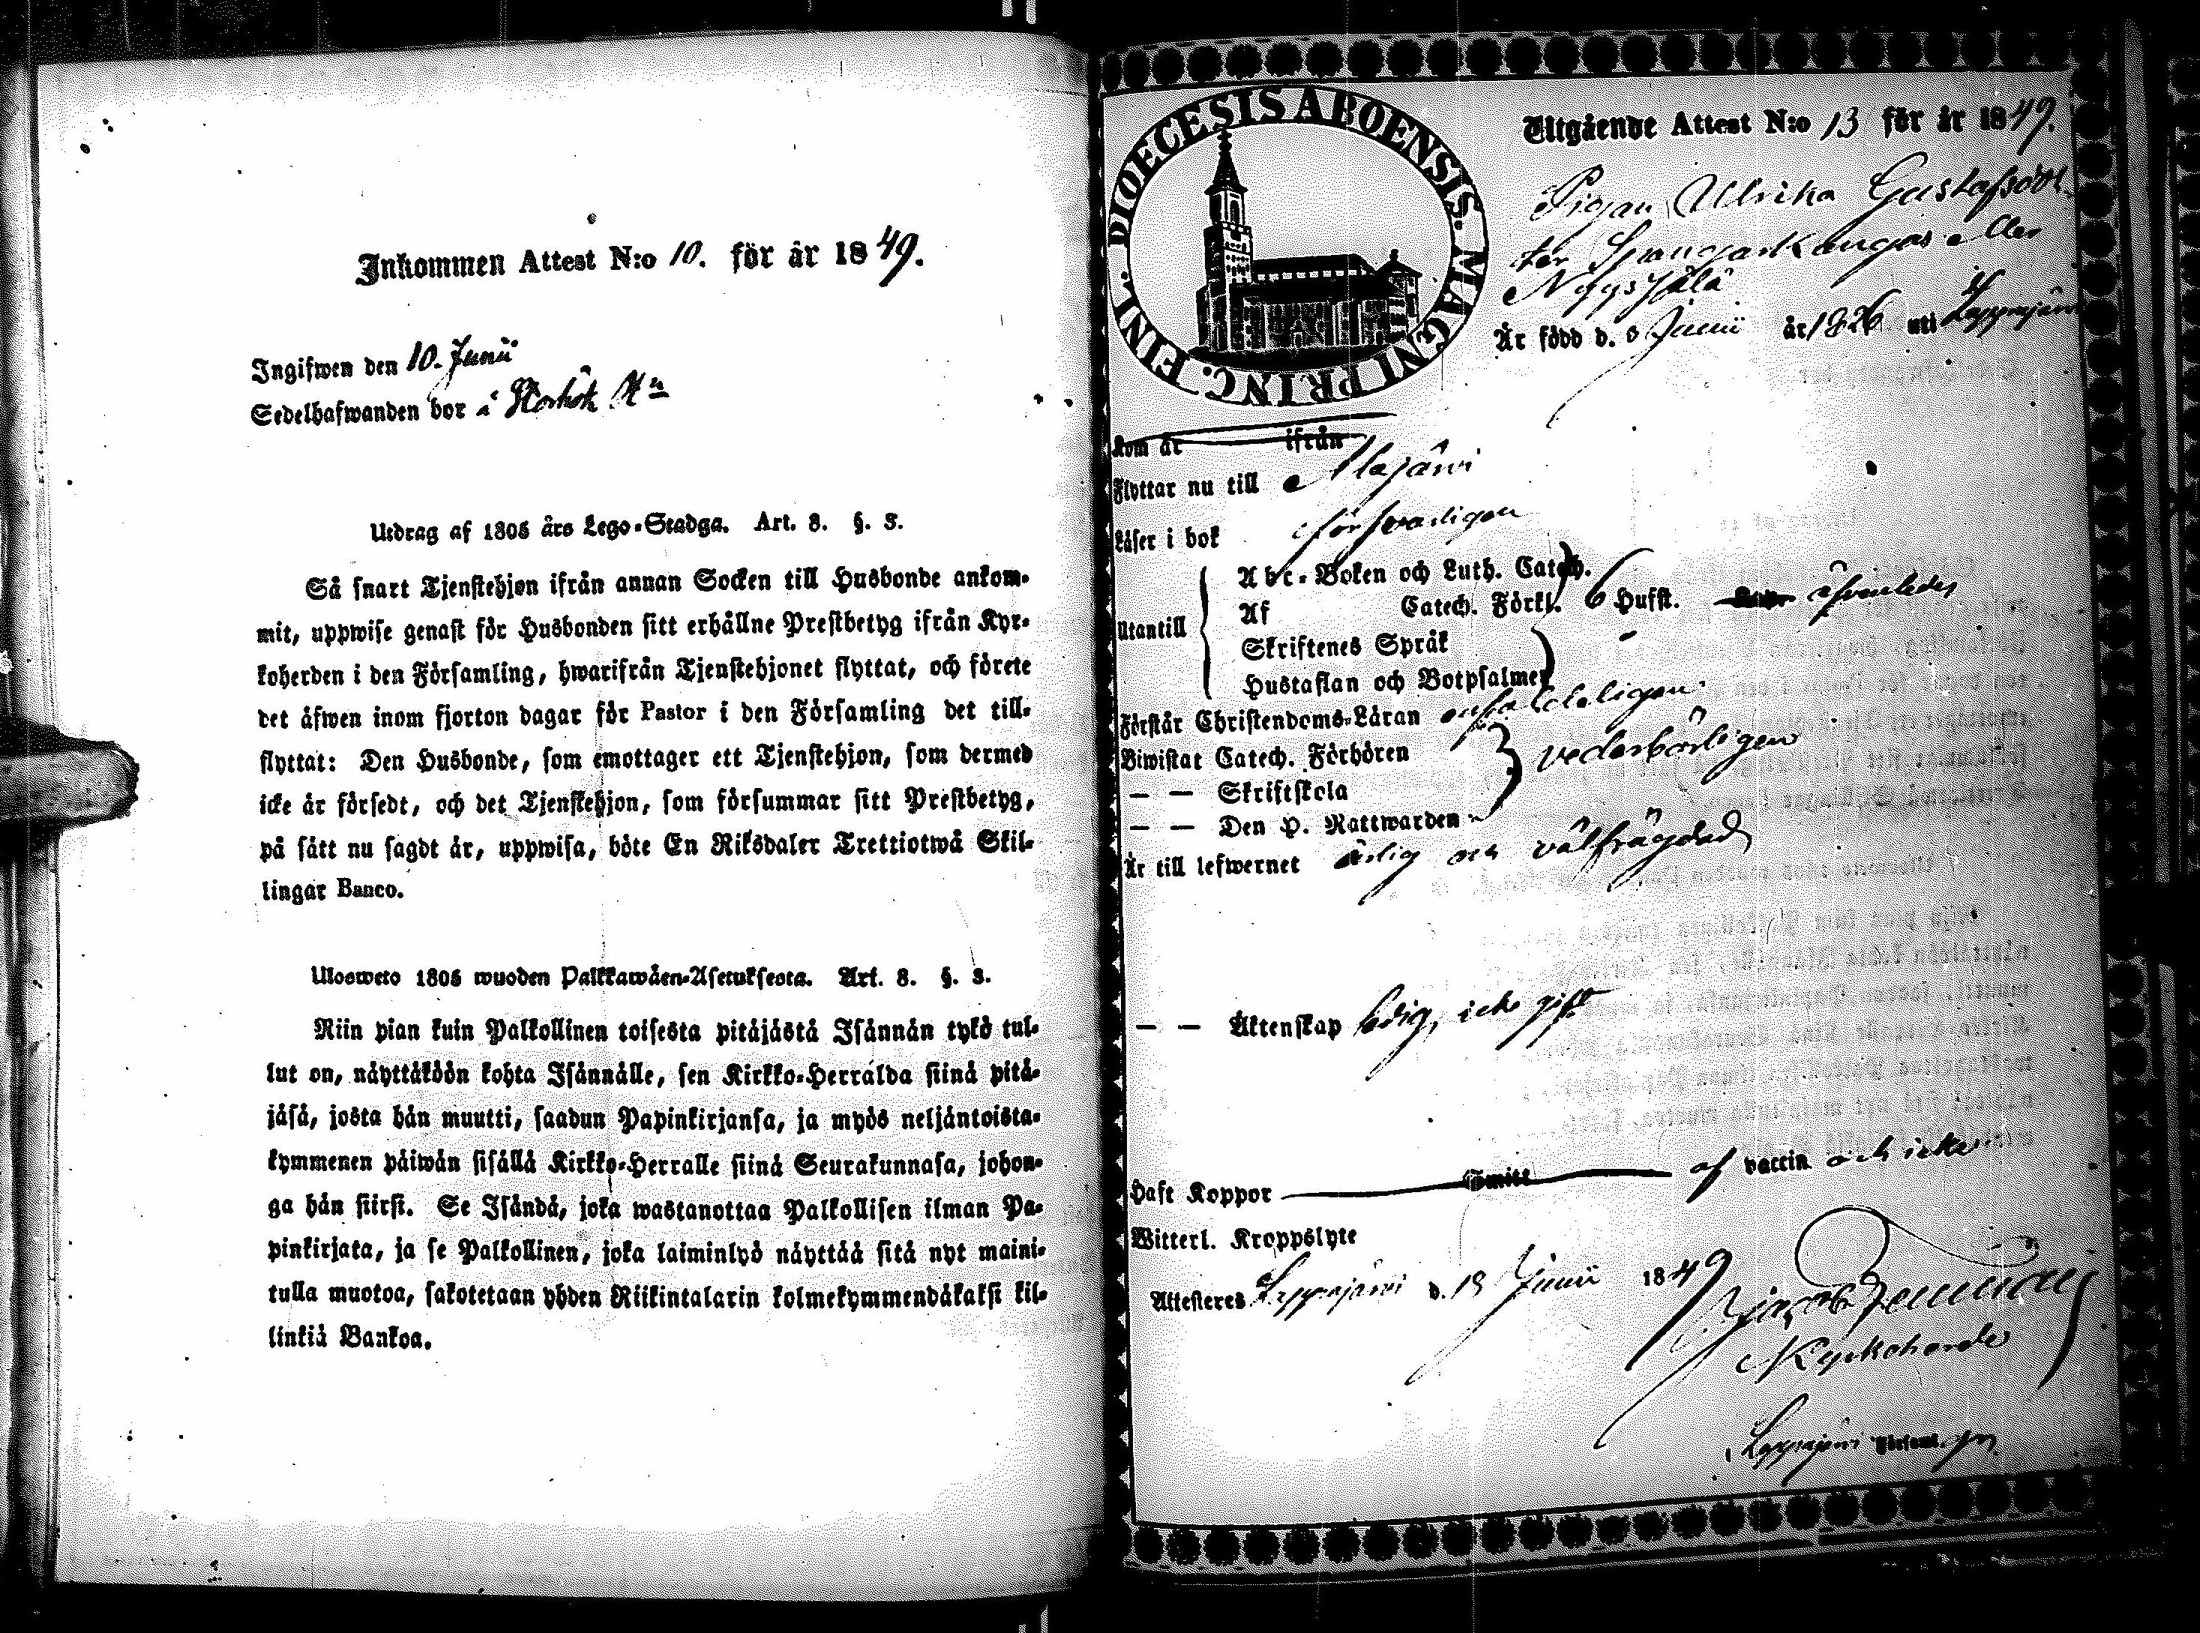 Inkommen Attest N:o 10. för år 1849.
Ingifwen den 10. Junii
Sedelhafwanden bor i
Utdrag af 1805 års Lego-Stadga. Art. 8. §. 3.
Så snart Tjenstehjon ifrån annan Socken till Husbonde ankom-
mit, uppwise genast för Husbonden sitt erhållne Prestbetyg ifrån Kyr-
koherden i den Församling, hwarifrån Tjenstehjonet flyttat, och förete
det äfwen inom fjorton dagar för Pastor i den Församling det till-
flyttat: Den Husbonde, som emottager ett Tjenstehjon, som dermed
icke är försedt, och det Tjenstehjon, som försummar sitt Prestbetyg,
på sätt nu sagdt är, uppwisa, böte En Riksdaler Trettiotwå Skil-
lingar Banco.
Ulosweto 1805 wuoden Palkkawäen-Asetuksesta. Art. 8. §. 3.
Niin pian kuin Palkollinen toisesta pitäjästä Isännän tykö tul-
lut on, näyttäköön kohta Isännälle, sen Kirkko-Herralda siinä pitä-
jäsä, josta hän muutti, saadun Papinkirjansa, ja myös neljäntoista-
kymmenen päiwän sisällä Kirkko-Herralle siinä Seurakunnasa, johon-
ga hän siirsi. Se Isändä, joka wastanottaa Palkollisen ilman Pa-
pinkirjata, ja se Palkollinen, joka laiminlyö näyttää sitä nyt maini-
tulla muotoa, sakotetaan yhden Riikintalarin kolmekymmendäkaksi kil-
linkiä Bankoa.
DIOECESIS ABOENSIS. MAGNI PRINC. FINL.
Utgående Attest N:o 13 för år 1849.
Pigan Ulrika Gustafsdot-
ter Spangarkangas eller
Nygsjälä
Är född d. 3 Junii år 1826 uti Lappajärvi
Kom år ifrån
Flyttar nu till Alajärvi
Läser i bok försvarligen
Utantill
Abc-Boken och Luth. Catech.
Af Catech. Förkl. 6 Hufst. äfvenledes
Skriftenes Språk
Hustaflan och Botpsalmer
Förstår Christendoms-Läran enfaldeligen.
Biwistat Catech. Förhören vederbörligen
— — Skriftskola
— — Den H. Nattwarden
Är till lefwernet ärlig och välfrägdad
— — Äktenskap ledig, icke gift
Haft Koppor Smitt af vaccin och icke
Witterl. Kroppslyte
Attesteras Lappajärvi d. 13 Junii 1849
Jacob
Kyrkoherde
Lappajärvi Församl.